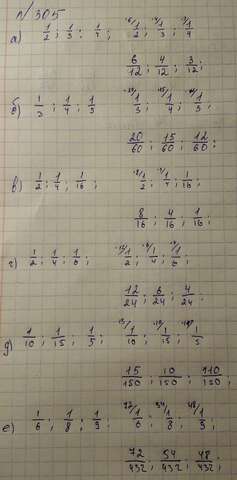 N 305
а) 1/2 ; 1/3 ; 1/4 ; 6/ 1/2 ; 4/ 1/3 ; 3/ 1/4
6/12 ; 4/12 ; 3/12 ;
б) 1/3 ; 1/4 ; 1/5 20/ 1/3 ; 15/ 1/4 ; 12/ 1/5 ;
20/60 ; 15/60 ; 12/60 ;
в) 1/2 ; 1/4 ; 1/16 ; 8/ 1/2 ; 4/ 1/4 ; 1/16 ;
8/16 ; 4/16 ; 1/16 ;
г) 1/2 ; 1/4 ; 1/6 ; 12/ 1/2 ; 6/ 1/4 ; 4/ 1/6 ;
12/24 ; 6/24 ; 4/24 ;
д) 1/10 ; 1/15 ; 1/5 ; 15/ 1/10 ; 10/ 1/15 ; 1/5
15/150 ; 10/150 ; 110/150 ;
е) 1/6 ; 1/8 ; 1/9 ; 72/ 1/6 ; 54/ 1/8 ; 48/ 1/9 ;
72/432 ; 54/432 ; 48/432 ;